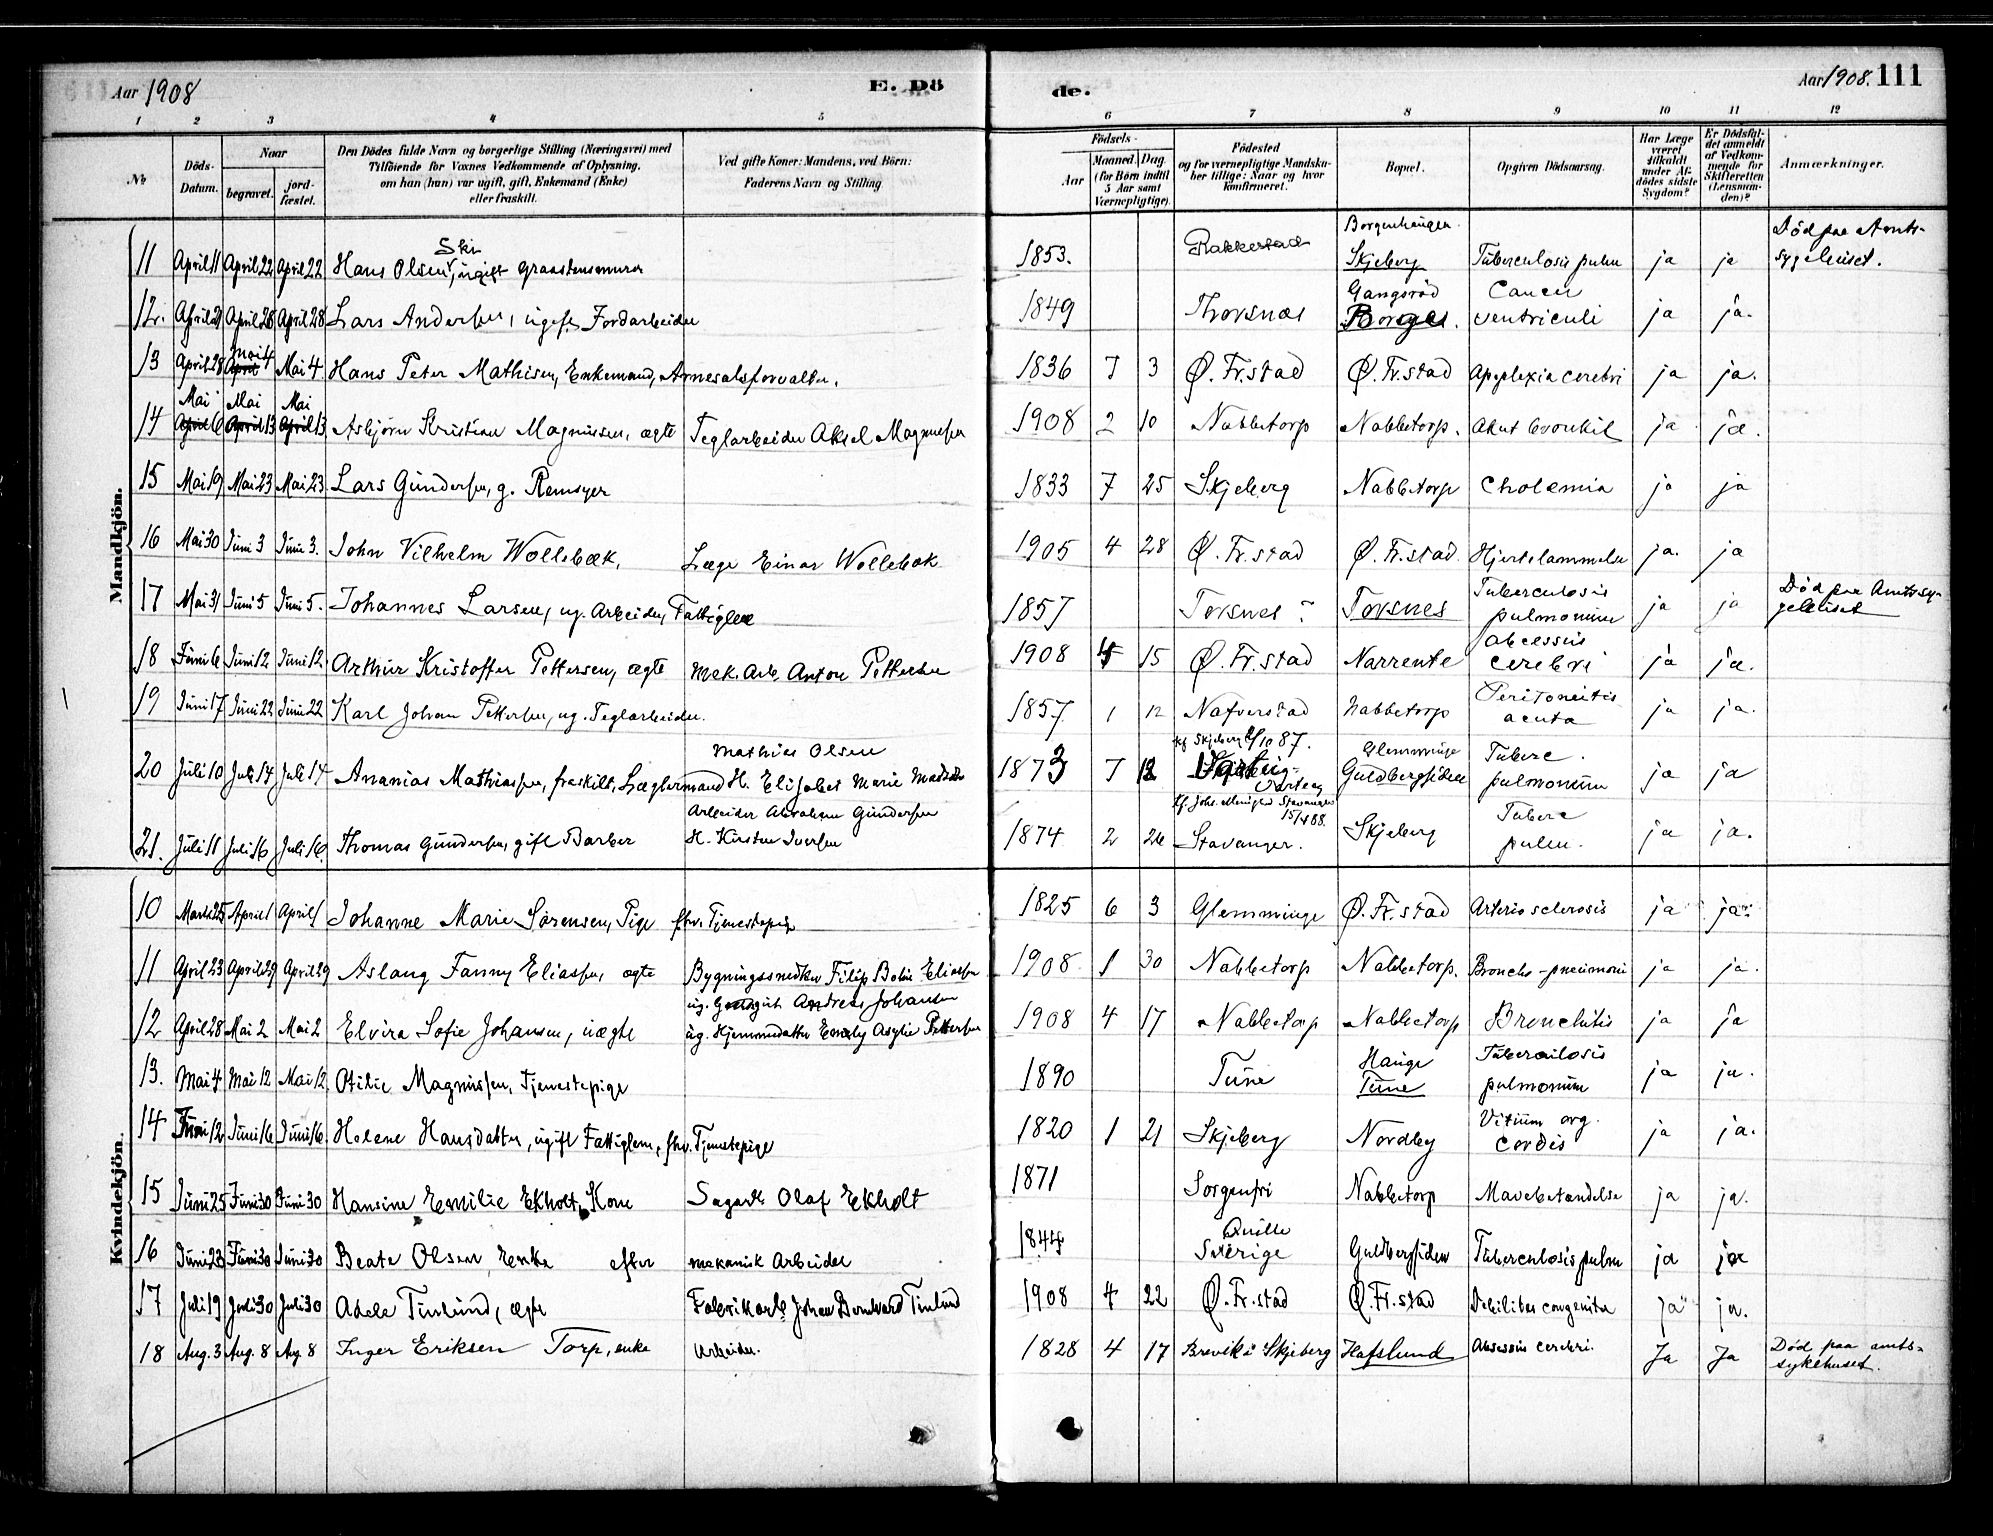 Aar 1908 E. Dö de. Aar 1908. 111
1 2 3 4 5 6 7 8 9 10 11 12
№ Döds-Datum. Naar begravet. jord-fæstet. Den Dödes fulde Navn og borgerlige Stilling (Næringsvei) med Tilföiende for Voxnes Vedkommende af Oplysning, om han (hun) var ugift, gift, Enkemand (Enke) eller fraskilt. Ved gifte Koner: Mandens, ved Börn: Faderens Navn og Stilling. Födsels- Aar Maaned. Dag. (for Börn indtil 5 Aar samt Værnepligtige). Födested og for værnepligtige Mandskaber tillige: Naar og hvor konfirmeret. Bopæl. Opgiven Dödsaarsag. Har Læge været tilkaldt under Afdödes sidste Sygdom? Er Dödsfaldet anmeldt af Vedkommende for Skifteretten (Lensmanden)? Anmærkninger.
Mandkjön.
11 April 11 April 22 April 22 Hans Olsen Ski, ugift Graastensmurer 1853. Rakkestad Borgenhaugen. Skjeberg Tuberculosis pulm ja ja Död paa Amts-sygehuset.
12. April 21 April 28 April 28 Lars Andersen, ugift Jordarbeider 1849 Thorsnæs Gangsröd Borge. Cancer ventriculi ja ja.
13 April 28 April Mai 4 Mai 4 Hans Peter Mathisen, Enkemand, 1836 7 3 Ø. Fr.stad Ø. Fr.stad Apoplexia cerebri ja ja.
14 April Mai 6 April Mai 13 April Mai 13 Asbjørn Kristian Magnussen, ægte Teglarbeider Aksel Magnussen 1908 2 10 Nabbetorp Nabbetorp. Akut bronkit ja ja.
15 Mai 19 Mai 23 Mai 23 Lars Gundersen, g. Remsyer 1833 7 25 Skjeberg Nabbetorp Cholemia ja ja
16 Mai 30 Juni 3 Juni 3. John Vilhelm Wollebæk, Læge Einar Wollebæk 1905 4 28 Ø. Fr.stad Ø. Fr.stad. Hjertelammelse ja. ja
17 Mai 31 Juni 5 Juni 5. Johannes Larsen, ug. Arbeider, Fattiglem 1857 Torsnes ? Torsnes Tuberculosis pulmonum ja ja Död paa Amtssygehuset
18 Juni 6 Juni 12 Juni 12 Arthur Kristoffer Pettersen, ægte Mek. Arb. Anton Pettersen 1908 4 15 Ø. Fr.stad Narrente abcessus cerebri ja ja.
19 Juni 17 Juni 22 Juni 22 Karl Johan Pettersen, ug. Teglarbeider. 1857 1 12 Nafverstad Nabbetorp Peritonitis acuta ja ja.
20 Juli 10 Juli 14 Juli 14 Ananias Mathiassen, fraskilt, Mathias Olsen H. Elisabet Marie 1873 7 12 Skjeberg /10 87. Varteig Glemminge Guldbergsiden Tuberc. pulmonum ja ja
21. Juli 11 Juli 16 Juli 16 Thomas Gundersen, gift Barber Arbeider Abraham Gundersen H. Kirsten Iversen 1874 2 26 Stavanger 15/4 88. Stavanger. Skjeberg Tuberc pulm. ja ja.
Kvindekjön.
10 Marts 25 April 1 April 1 Johanne Marie Sørensen, Pige fhv. Tjenestepige 1825 6 3 Glemminge Ø. Fr.stad Arteriosclerosis ja ja.
11 April 23 April 29 April 29 Aslaug Fanny Eliassen, ægte Bygningssnedker Filip Eliassen 1908 1 30 Nabbetorp Nabbetorp. Broncho-pneumoni ja ja.
12 April 28 Mai 2 Mai 2 Elvira Sofie Johansen, uægte ug. Andreas Johansen ug. Hjemmedatter Pettersen 1908 4 17 Nabbetorp Nabbetorp Bronchitis ja ja
13. Mai 4 Mai 12 Mai 12 Otilie Magnussen, Tjenestepige 1890 Tune Hauge Tune Tuberculosis pulmonum ja ja.
14 Juni 12 Juni 16 Juni 16 Helene Hansdatter, ugift Fattiglem, fhv. Tjenestepige 1820 1 21 Skjeberg Nordby Vitium org. cordis ja ja.
15 Juni 25 Juni 30 Juni 30 Hansine Emilie Ekholt, Kone Sagarb Olaf Ekholt 1871 Sorgenfri Nabbetorp Mavebetændelse ja ja.
16 Juni 23 Juni 30 Juni 30 Beate Olsen, Enke efter mekanisk Arbeider 1844 Quille Sverige Guldbergsiden Tuberculosis pulm ja ja
17 Juli 19 Juli 30 Juli 30 Adele Tinlund, ægte Fabrikarb. Johan Bernhard Tinlund 1908 4 22 Ø. Fr.stad Ø. Fr.stad Debilitas congenita ja ja.
18 Aug. 3 Aug. 8 Aug. 8 Inger Eriksen Torp, enke Arbeider. 1828 4 17 Brevik i Skjeberg Hafslund Absessus cerebri. Ja Ja Död paa amts-sykehuset.